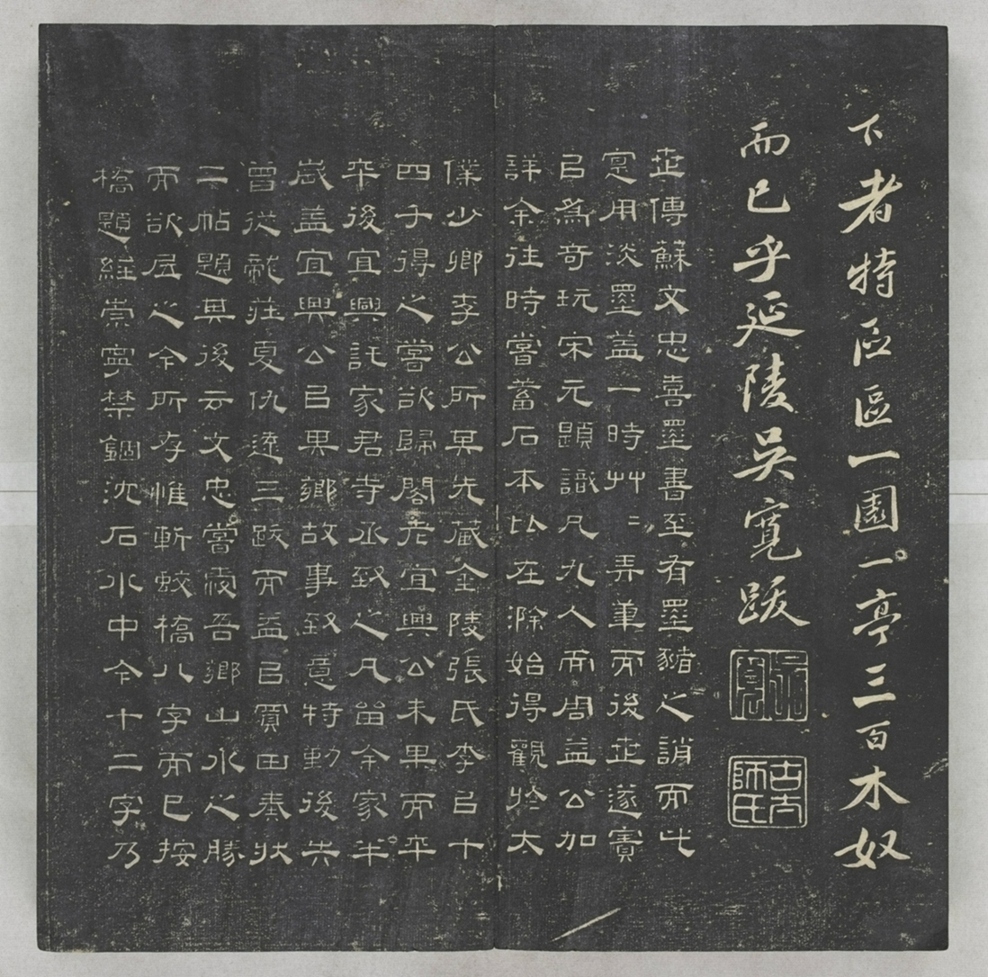 下者特區區一園一亭三百木奴
而已乎延陵吳寬跋
吳寬
古太師氏
世傳蘇文忠喜墨書至有墨豬之誚而此
寔用淡墨蓋一時艸〻弄筆而後世遂寶
㠯為奇玩宋元題識凡九人而周益公加
詳余往時嘗蓄石本比在滁始得觀於太
僕少卿李公所其先藏金陵張氏李㠯十
四千得之嘗欲歸閣老宜興公未果而卒
卒後宜興託家君寺丞致之凡留余家半
歲蓋宜興公㠯其鄉故事致意特勤後先
曾從龍莊夏仇遠三跋而益㠯買田奏狀
二帖題其後云文忠嘗愛吾鄉山水之勝
而欲居之今所存惟斬蛟橋八字而已按
橋題經崇寧禁錮沈石水中今十二字乃